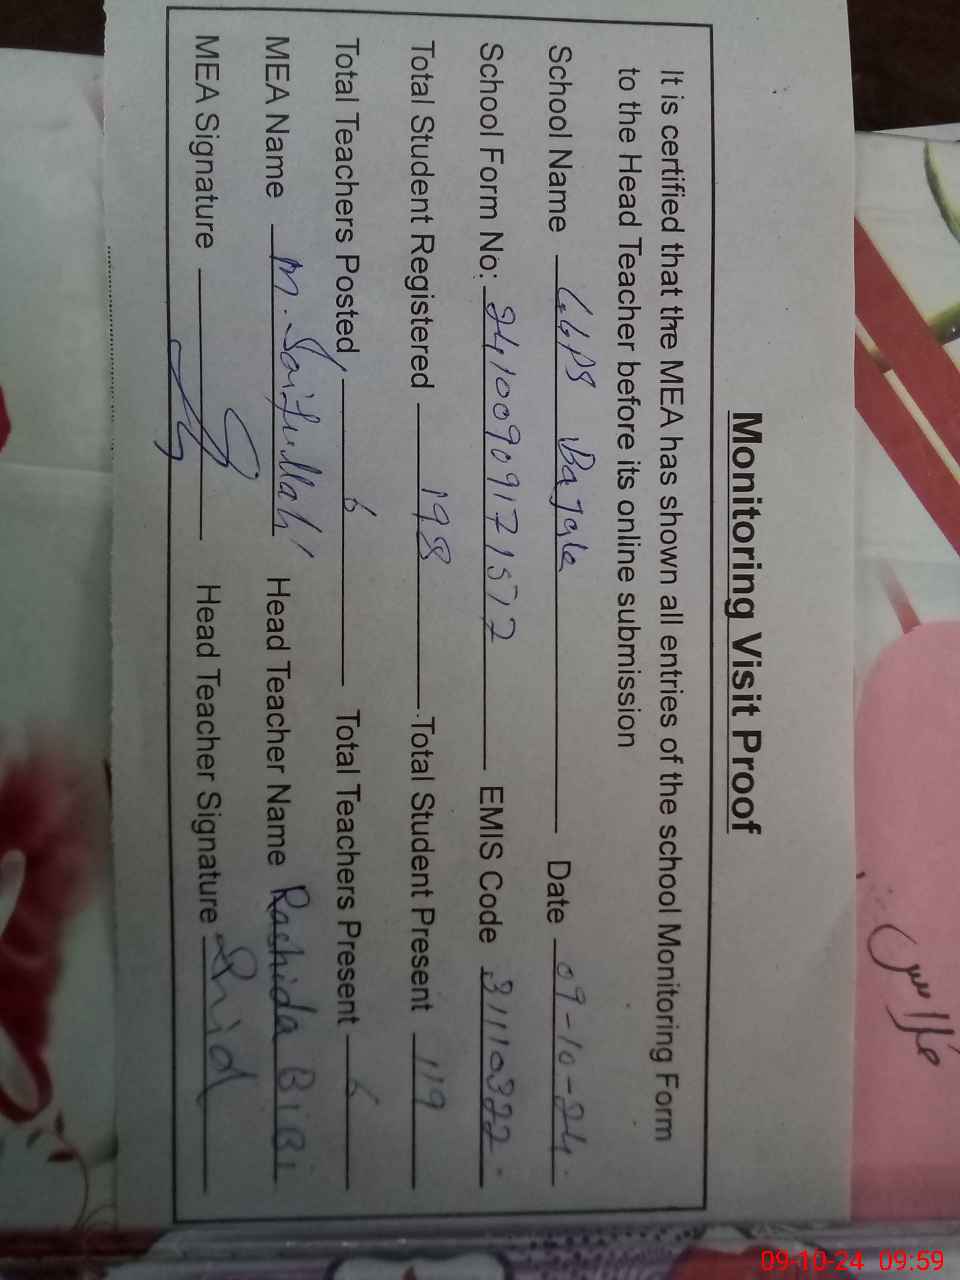 Monitoring Visit Proof
It is certified that the MEA has shown all entries of the school Monitoring Form
to the Head Teacher before its online submission
School Name GGPS Date 09-10-24
School Form No: 24100909171572 EMIS Code 31110322
Total Student Registered 198 Total Student Present 119
Total Teachers Posted 6 Total Teachers Present 6
MEA Name M. Saifullah Head Teacher Name Rashida BiBi
MEA Signature Head Teacher Signature
09-10-24 09:59